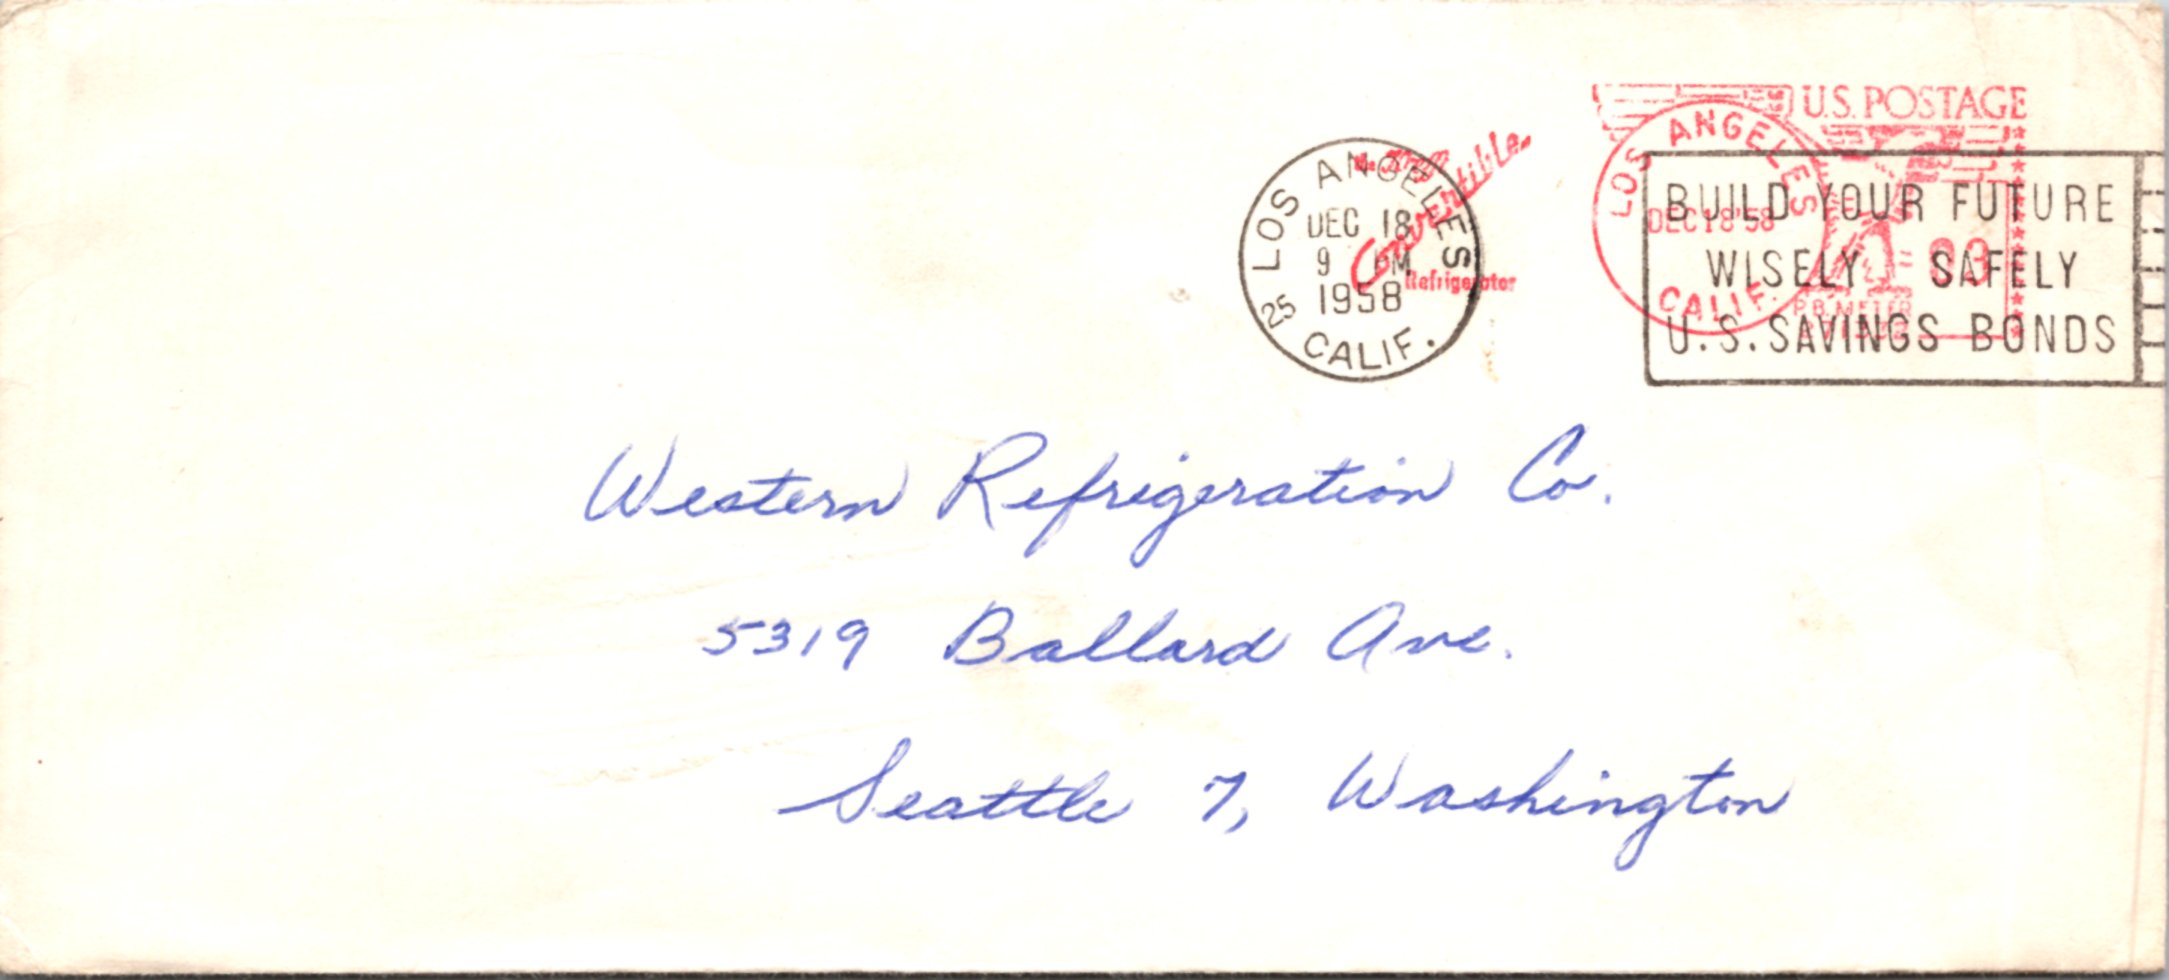 LOS ANGELES
25 CALIF.
DEC 18
9 PM
1958
Convertible
Refrigerator
U.S. POSTAGE
LOS ANGELES
CALIF.
DEC 18 '58
P.B. METER
BUILD YOUR FUTURE
WISELY SAFELY
U.S. SAVINGS BONDS
Western Refrigeration Co.
5319 Ballard Ave.
Seattle 7, Washington